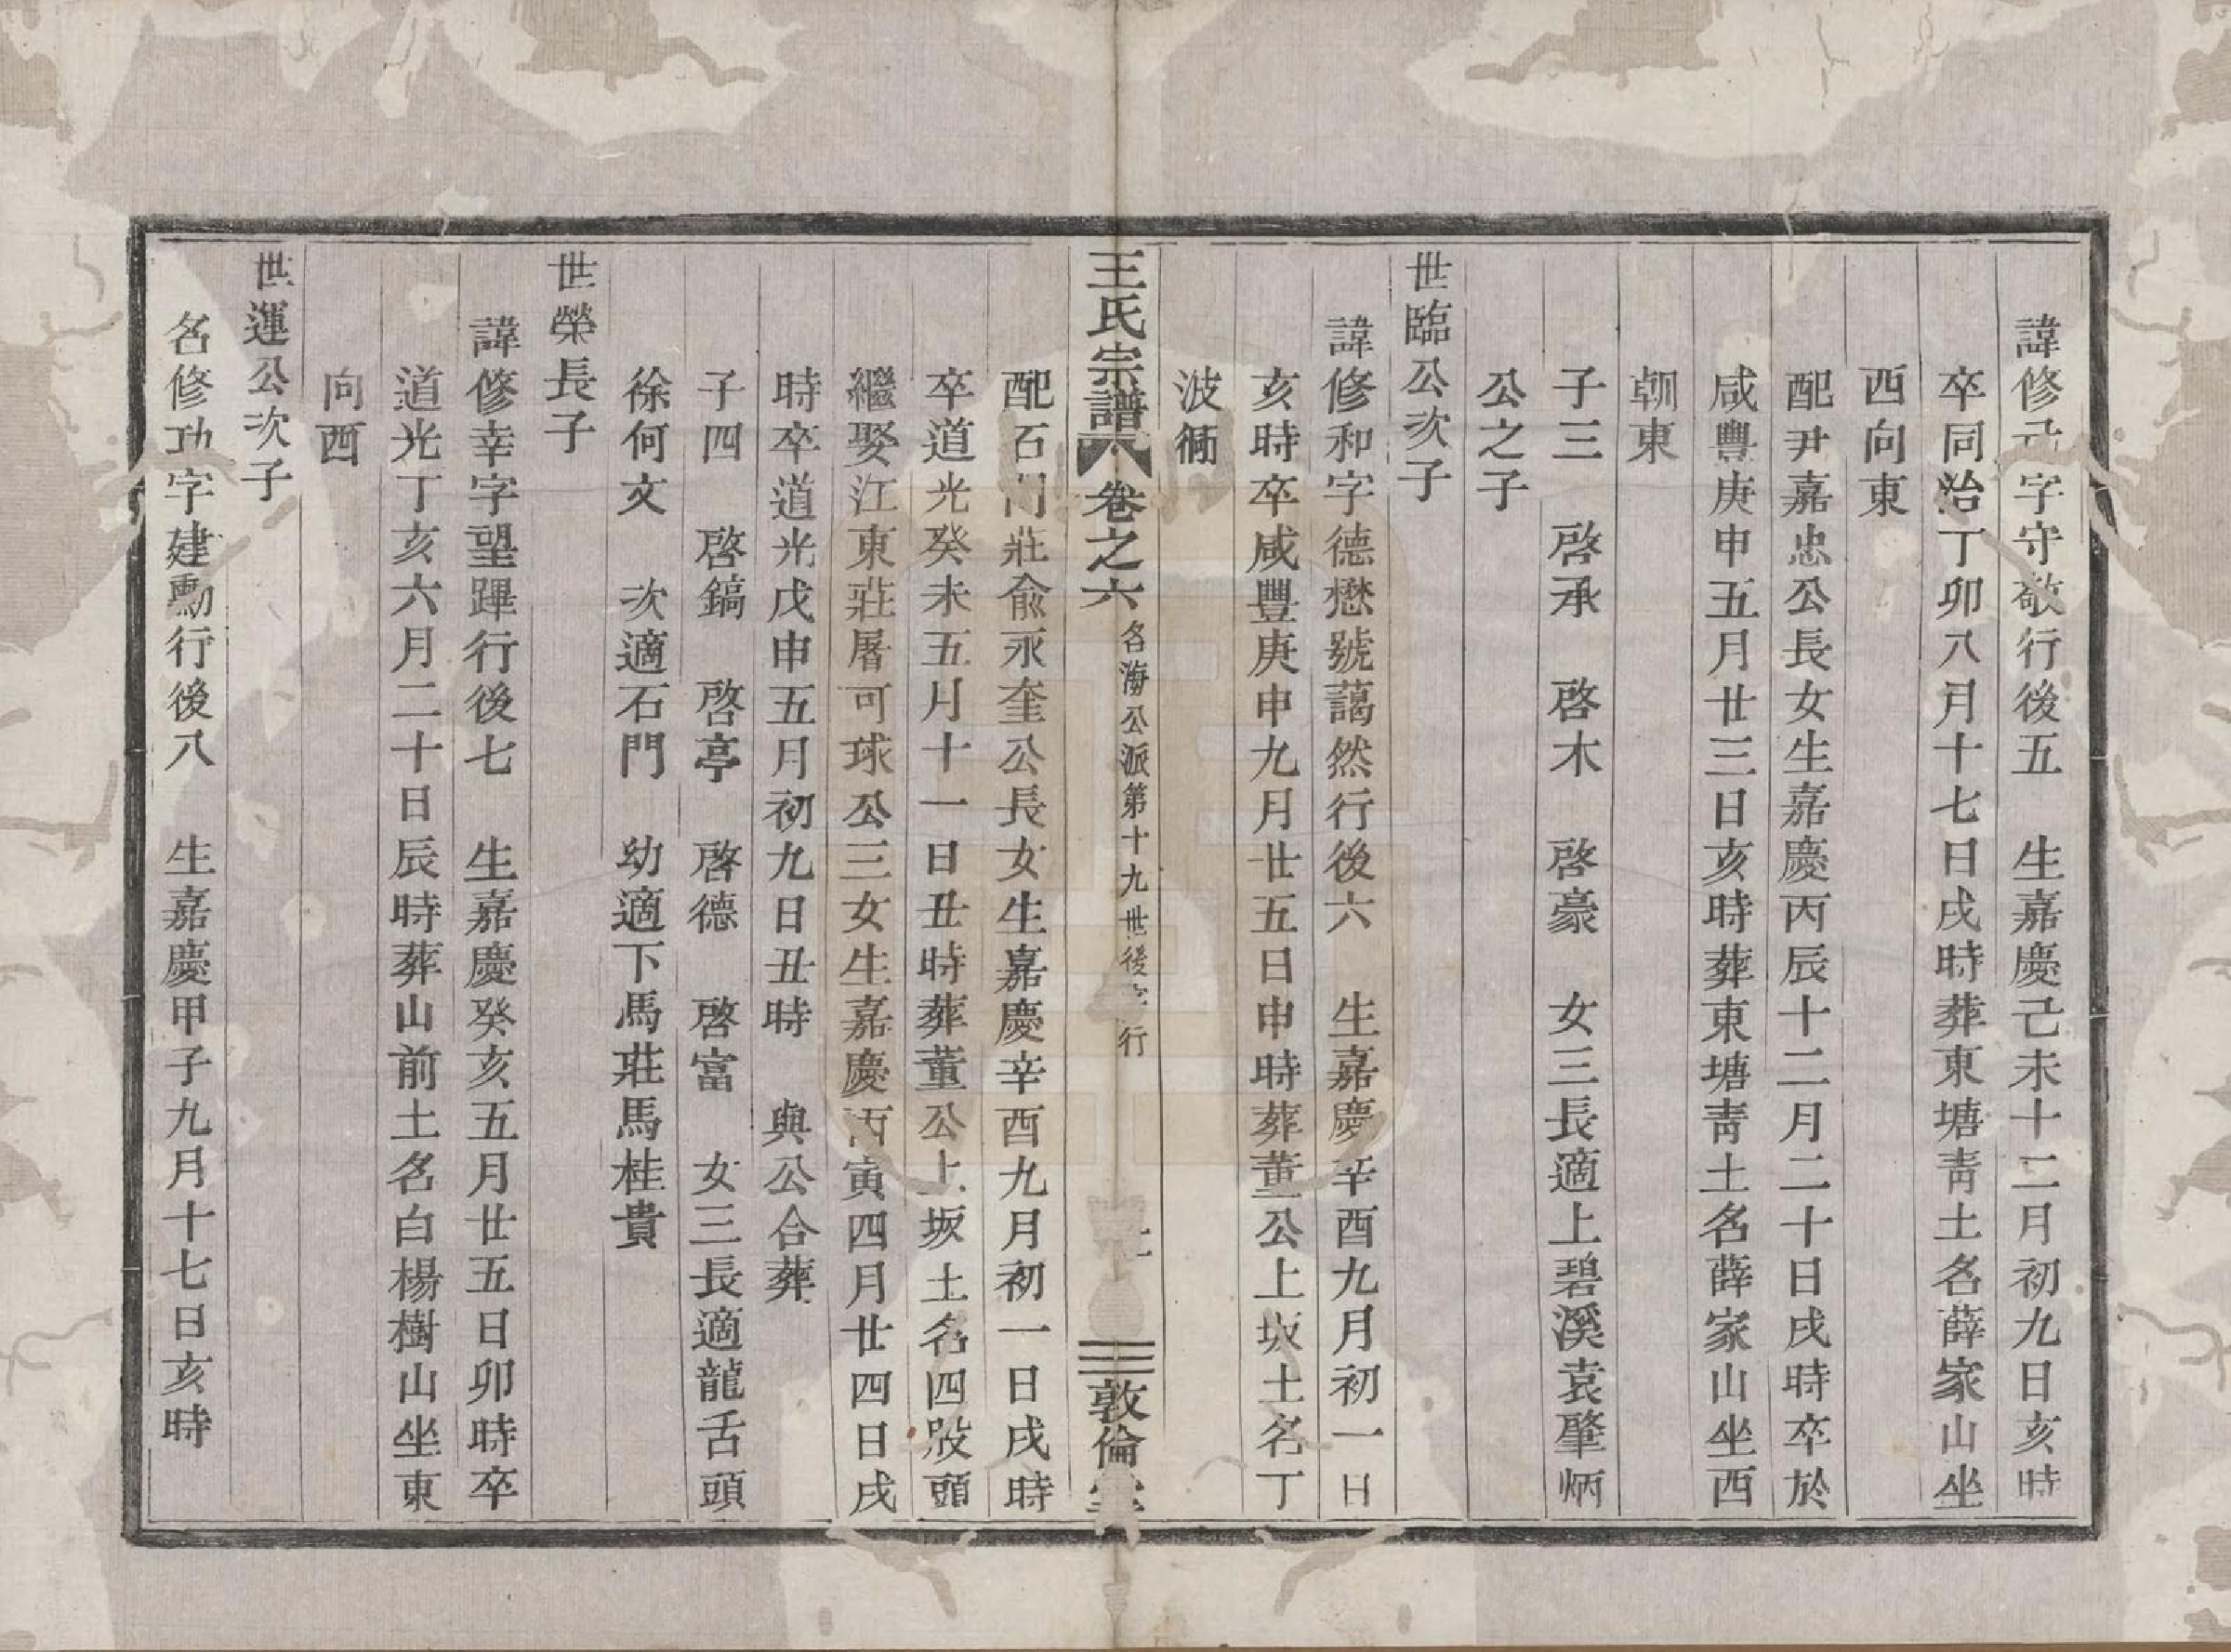 諱修己字守敬行後五　生嘉慶己未十二月初九日亥時
卒同治丁卯八月十七日戌時葬東塘青土名薛家山坐
西向東
配尹嘉忠公長女生嘉慶丙辰十二月二十日戌時卒於
咸豐庚申五月廿三日亥時葬東塘青土名薛家山坐西
朝東
子三　啓承　啓木　啓豪　女三長適上碧溪袁肇炳
公之子
世臨公次子
諱修和字德懋號藹然行後六　生嘉慶辛酉九月初一日
亥時卒咸豐庚申九月廿五日申時葬董公上坂土名丁
波衕
王氏宗譜　卷之六　名海公派第十九世後字行　敦倫堂
配石門莊俞永奎公長女生嘉慶辛酉九月初一日戌時
卒道光癸未五月十一日丑時葬董公上坂土名四股頭
繼娶江東莊屠可球公三女生嘉慶丙寅四月廿四日戌
時卒道光戊申五月初九日丑時　與公合葬
子四　啓鎬　啓亭　啓德　啓富　女三長適龍舌頭
徐何文　次適石門　幼適下馬莊馬桂貴
世榮長子
諱修幸字望蹕行後七　生嘉慶癸亥五月廿五日卯時卒
道光丁亥六月二十日辰時葬山前土名白楊樹山坐東
向西
世運公次子
名修功字建勳行後八　生嘉慶甲子九月十七日亥時